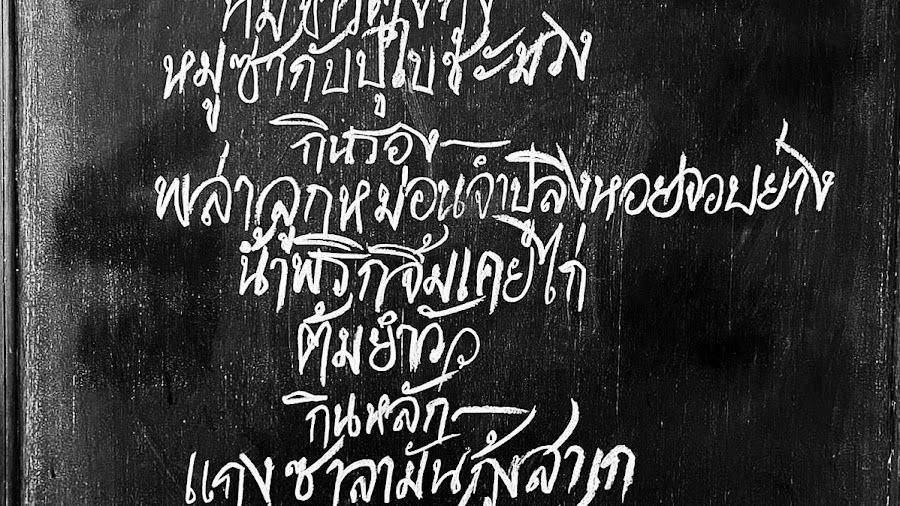 หมูซากับปูใบชะมวง
กินรอง
พล่าลูกหม่อนจำปูลิงหอยจอบย่าง
น้ำพริกจิ้มเคยไก่
ต้มยำวัว
กินหลัก
แกงซาลามันกุ้งสาเก